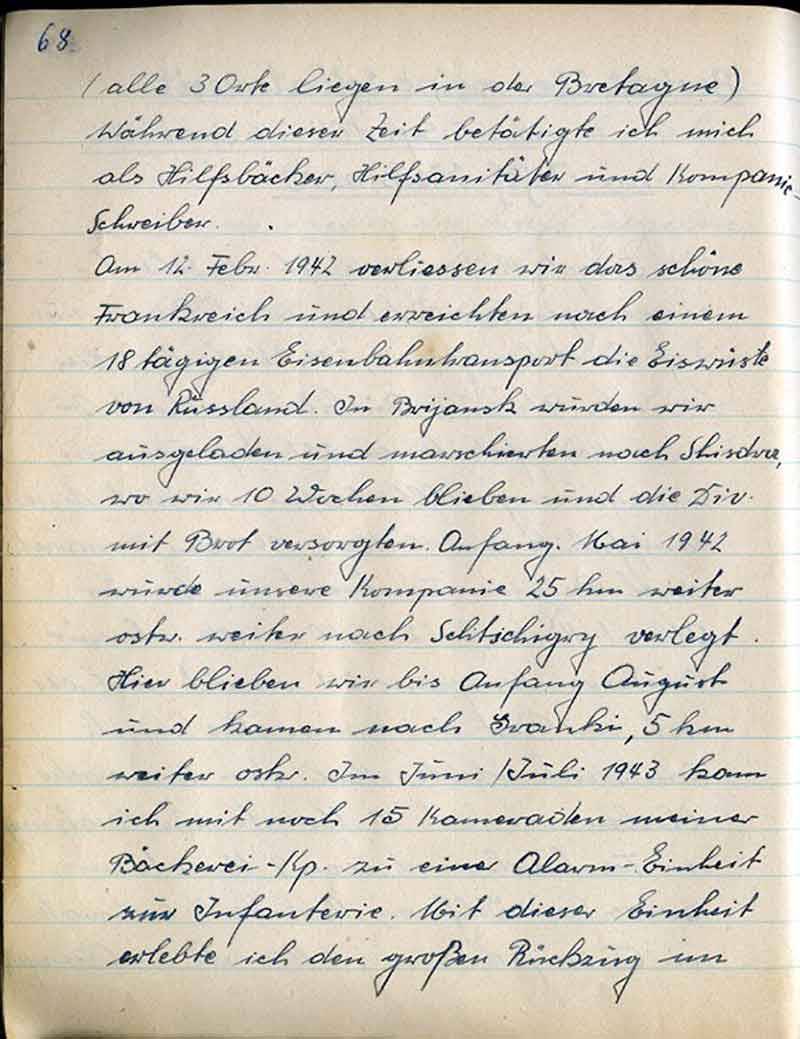 68.
(alle 3 Orte liegen in der Bretagne)
Während dieser Zeit betätigte ich mich
als Hilfsbäcker, Hilfsanitäter und Kompanie-
Schreiber.
Am 12. Febr. 1942 verliessen wir das schöne
Frankreich und erreichten nach einem
18 tägigen Eisenbahntransport die Eiswüste
von Russland. In Brijansk wurden wir
ausgeladen und marschierten nach
wo wir 10 Wochen blieben und die Div.
mit Brot versorgten. Anfang. Mai 1942
wurde unsere Kompanie 25 km weiter
ostw. weiter nach Schtschigry verlegt.
Hier blieben wir bis Anfang August
und kamen nach Ivanki, 5 km
weiter ostw. Im Juni/Juli 1943 kam
ich mit noch 15 Kameraden meiner
Bäckerei-Kp. zu einer Alarm-Einheit
zur Infanterie. Mit dieser Einheit
erlebte ich den großen Rückzug im